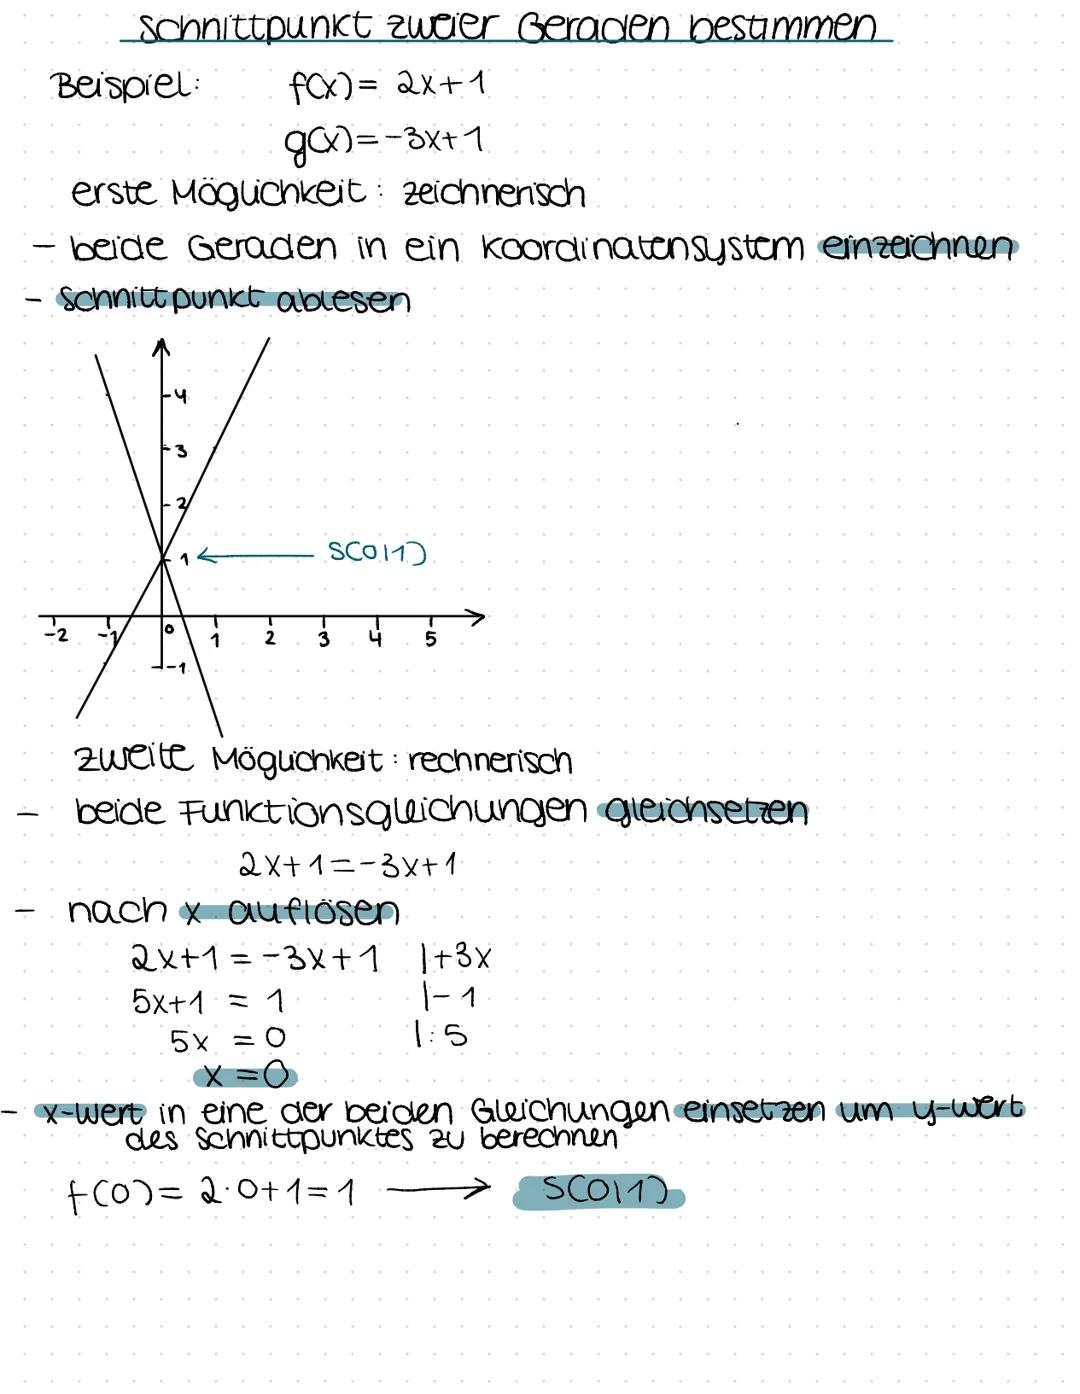 Schnittpunkt zweier Geraden bestimmen
Beispiel: f(x)= 2x+1
g(x)=-3x+1
erste Möglichkeit: zeichnerisch
- beide Geraden in ein Koordinatensystem einzeichnen
- Schnittpunkt ablesen
4
3
2
1 ← S(0|1)
-2 -1 0 1 2 3 4 5
-1
zweite Möglichkeit: rechnerisch
- beide Funktionsgleichungen gleichsetzen
2x+1=-3x+1
- nach x auflösen
2x+1=-3x+1 |+3x
5x+1 = 1 |-1
5x = 0 |:5
x=0
- x-Wert in eine der beiden Gleichungen einsetzen um y-Wert
des Schnittpunktes zu berechnen
f(0)= 2·0+1=1 → S(0|1)